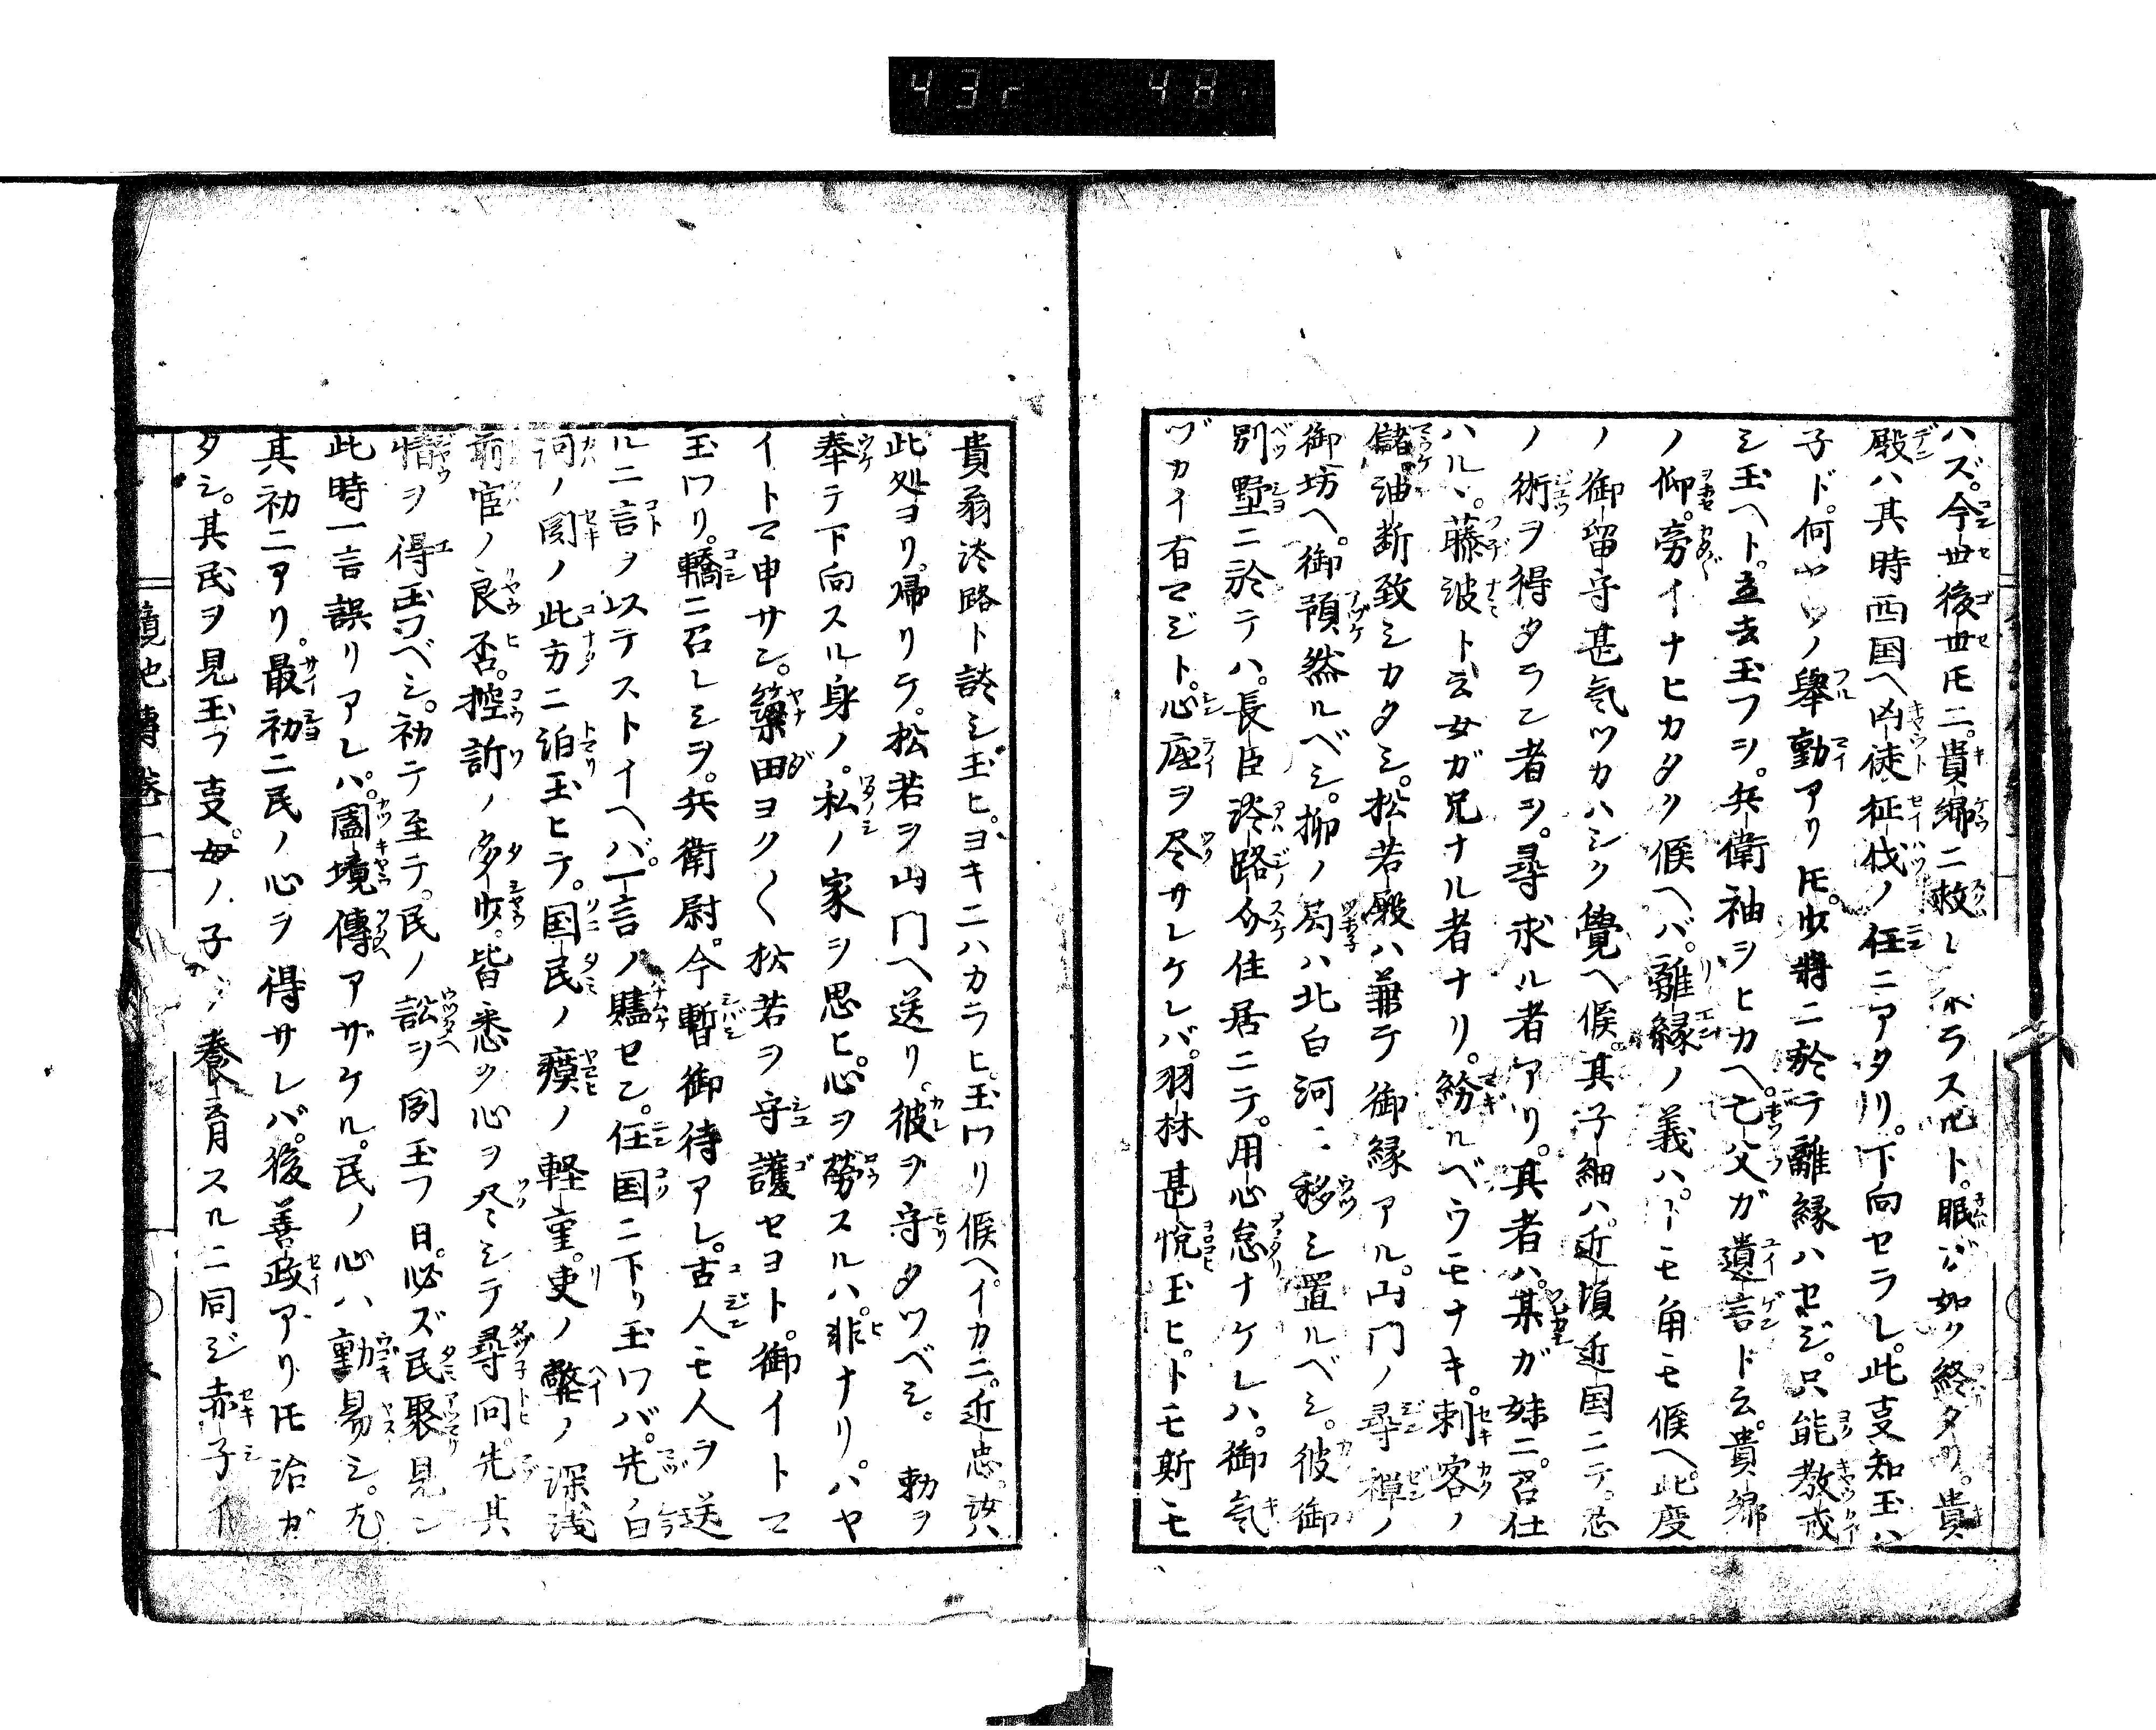 43r 48
ハズ。今世後世𪜈ニ。貴郷ニ救レ
殿ハ其時西国ヘ凶徒征伐ノ任ニアタリ。下向セラレ。此支知玉ハ
子ド。何ヤウノ舉動アリ𪜈。少将ニ於テ離縁ハセジ。只能教戒
シ玉ヘト。立去玉フヲ。兵衛袖ヲヒカヘ。亡父ガ遺言ド云。貴郷
ノ仰。旁イナヒカタク候ヘバ。離縁ノ義ハ。トモ角モ候ヘ。此度
ノ御留守甚気ツカハシク覺ヘ候。其子細ハ。近頃近国ニテ。忍
ノ術ヲ得タラン者ヲ。尋求ル者アリ。其者ハ。某ガ妹ニ。召仕
ハル丶。藤波ト云女ガ兄ナル者ナリ。紛ルベウモナキ。刺客ノ
儲油断致シカタシ。松若殿ハ兼テ御縁アル。山門ノ尋禅ノ
御坊ヘ。御預然ルベシ。柳ノ局ハ北白河ニ移シ置ルベシ。彼御
別墅ニ於テハ。長臣淡路介住居ニテ。用心怠ナケレハ。御気
ヅカイ有マジト。心底ヲ尽サレケレバ。羽林甚悦玉ヒ。トモ斯モ
貴翁淡路ト談シ玉ヒ。ヨキニハカラヒ。玉ワリ候ヘ。イカニ。近忠。汝ハ
此処ヨリ。帰リテ。松若ヲ山門ヘ送リ。彼ヲ守タツベシ。勅ヲ
奉テ下向スル身ノ。私ノ家ヲ思ヒ。心ヲ勞スルハ。非ナリ。ハヤ
イトマ申サン。簗田ヨク〱松若ヲ守護セヨト。御イトマ
玉ワリ。轎ニ召レシヲ。兵衛尉。今暫御待アレ。古人モ人ヲ送
ルニ言ヲ以テストイヘバ。一言ノ贐セン。任国ニ下リ玉ワバ。先白
河ノ関ノ此方ニ泊玉ヒテ。国民ノ瘼ノ軽重。吏ノ弊ノ深浅
前官ノ良否。控訴ノ多少。皆悉ク心ヲ尽シテ尋問。先其
情ヲ得玉フベシ。初テ至テ。民ノ訟ヲ聞玉フ日。必ズ民聚見ン
此時一言誤リアレハ。闔境傳アザケル。民ノ心ハ動易シ。尤
其初ニアリ。最初ニ民ノ心ヲ得サレバ。後善政アリ𪜈治ガ
タシ。其民ヲ見玉フ支。母ノ子ヲ養育スルニ同ジ赤子イ
鏡池傳 巻一